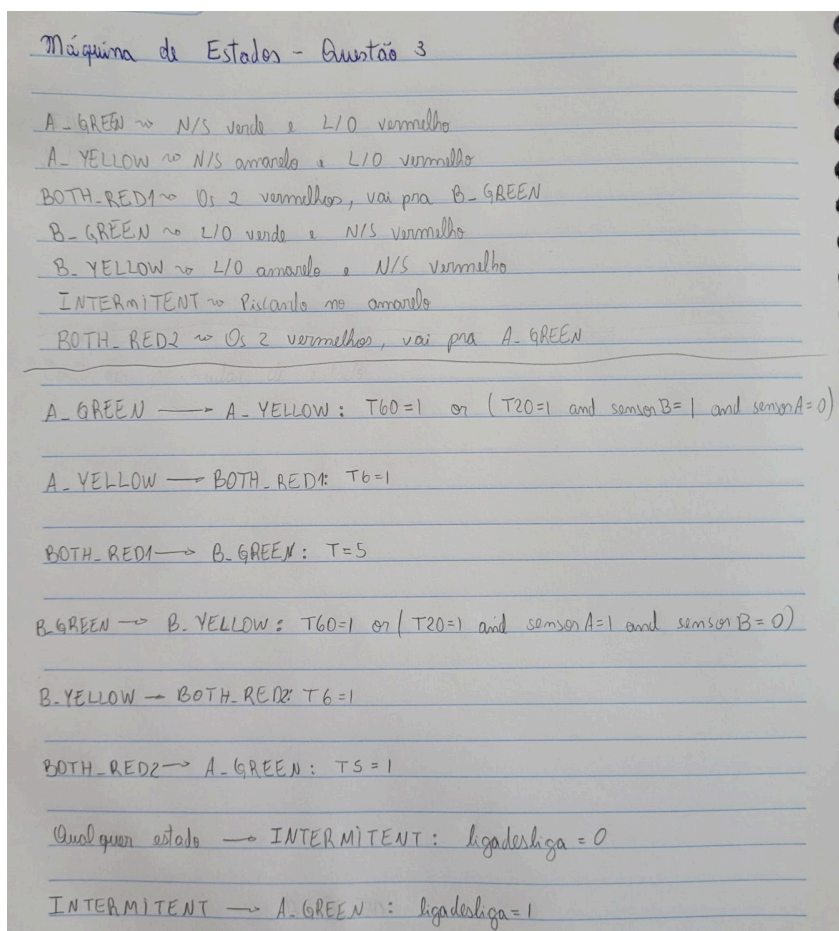 Máquina de Estados - Questão 3
A_GREEN ~> N/S verde e L/O vermelho
A_YELLOW ~> N/S amarelo e L/O vermelho
BOTH_RED1 ~> Os 2 vermelhos, vai pra B_GREEN
B_GREEN ~> L/O verde e N/S vermelho
B_YELLOW ~> L/O amarelo e N/S vermelho
INTERMITENT ~> Piscando no amarelo
BOTH_RED2 ~> Os 2 vermelhos, vai pra A_GREEN
A_GREEN → A_YELLOW: T60=1 or (T20=1 and sensorB=1 and sensorA=0)
A_YELLOW → BOTH_RED1: T6=1
BOTH_RED1 → B_GREEN: T=5
B_GREEN → B_YELLOW: T60=1 or (T20=1 and sensorA=1 and sensorB=0)
B_YELLOW → BOTH_RED2: T6=1
BOTH_RED2 → A_GREEN: T5=1
Qualquer estado → INTERMITENT: ligadesliga=0
INTERMITENT → A_GREEN: ligadesliga=1